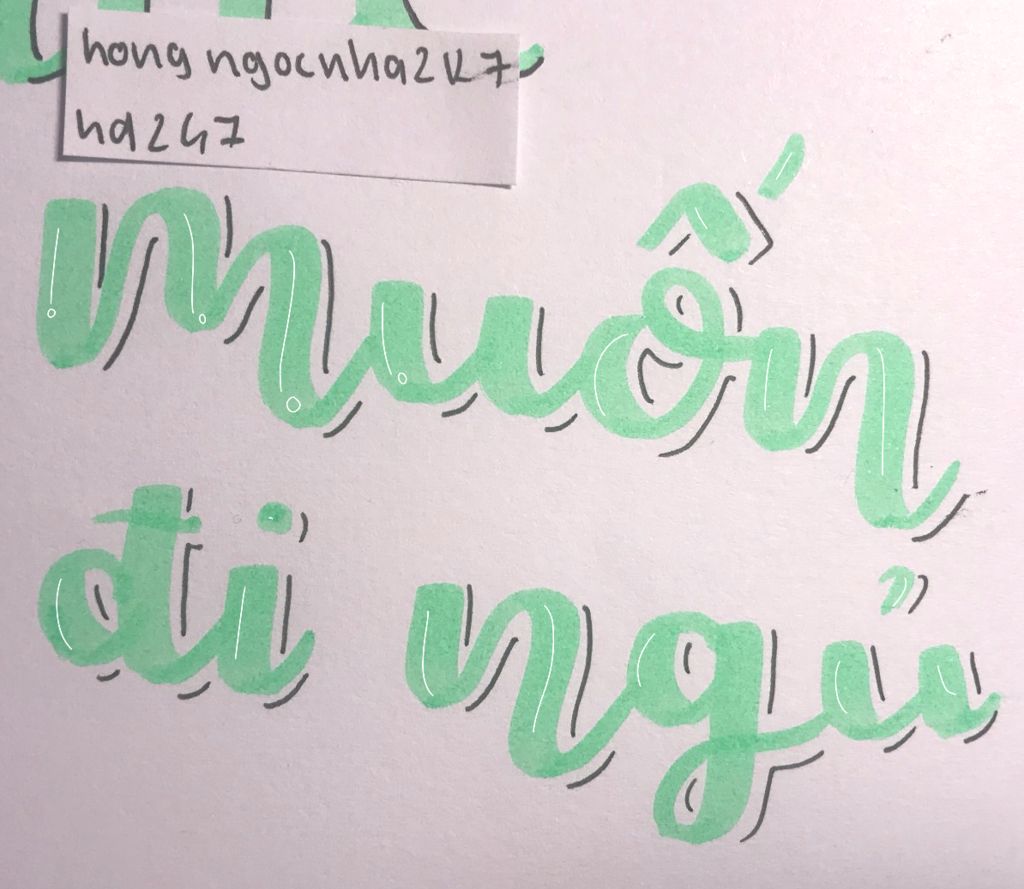 hong ngocnha2k7
ha247
muốn
đi ngủ